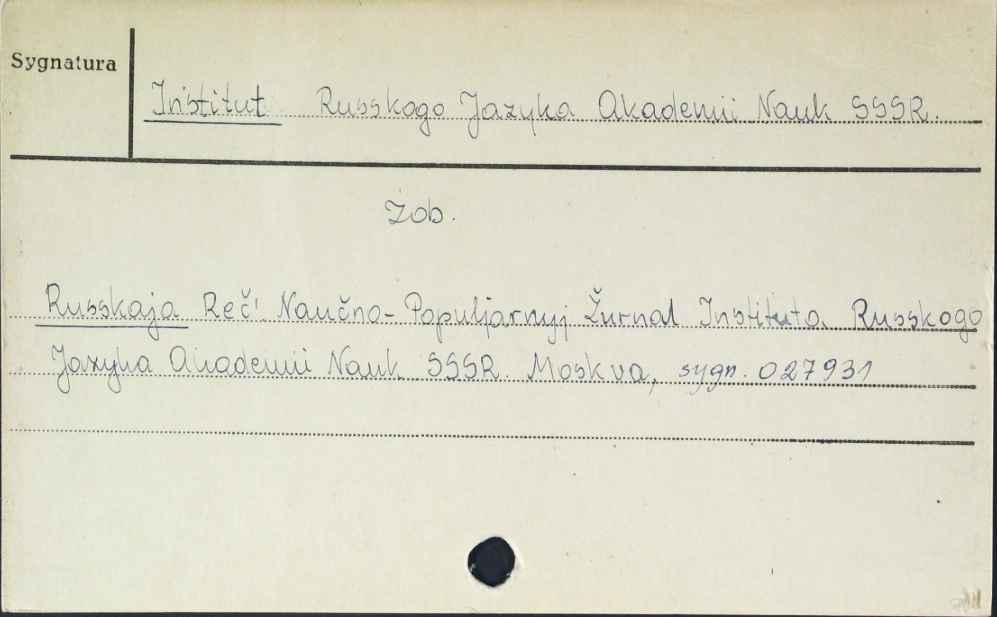 Sygnatura
Institut Russkogo Jazyka Akademii Nauk SSSR.
Zob.
Russkaja Reč' Naučno-Populjarnyj Žurnal Instituta Russkogo
Jazyka Akademii Nauk SSSR. Moskva, sygn. 027931